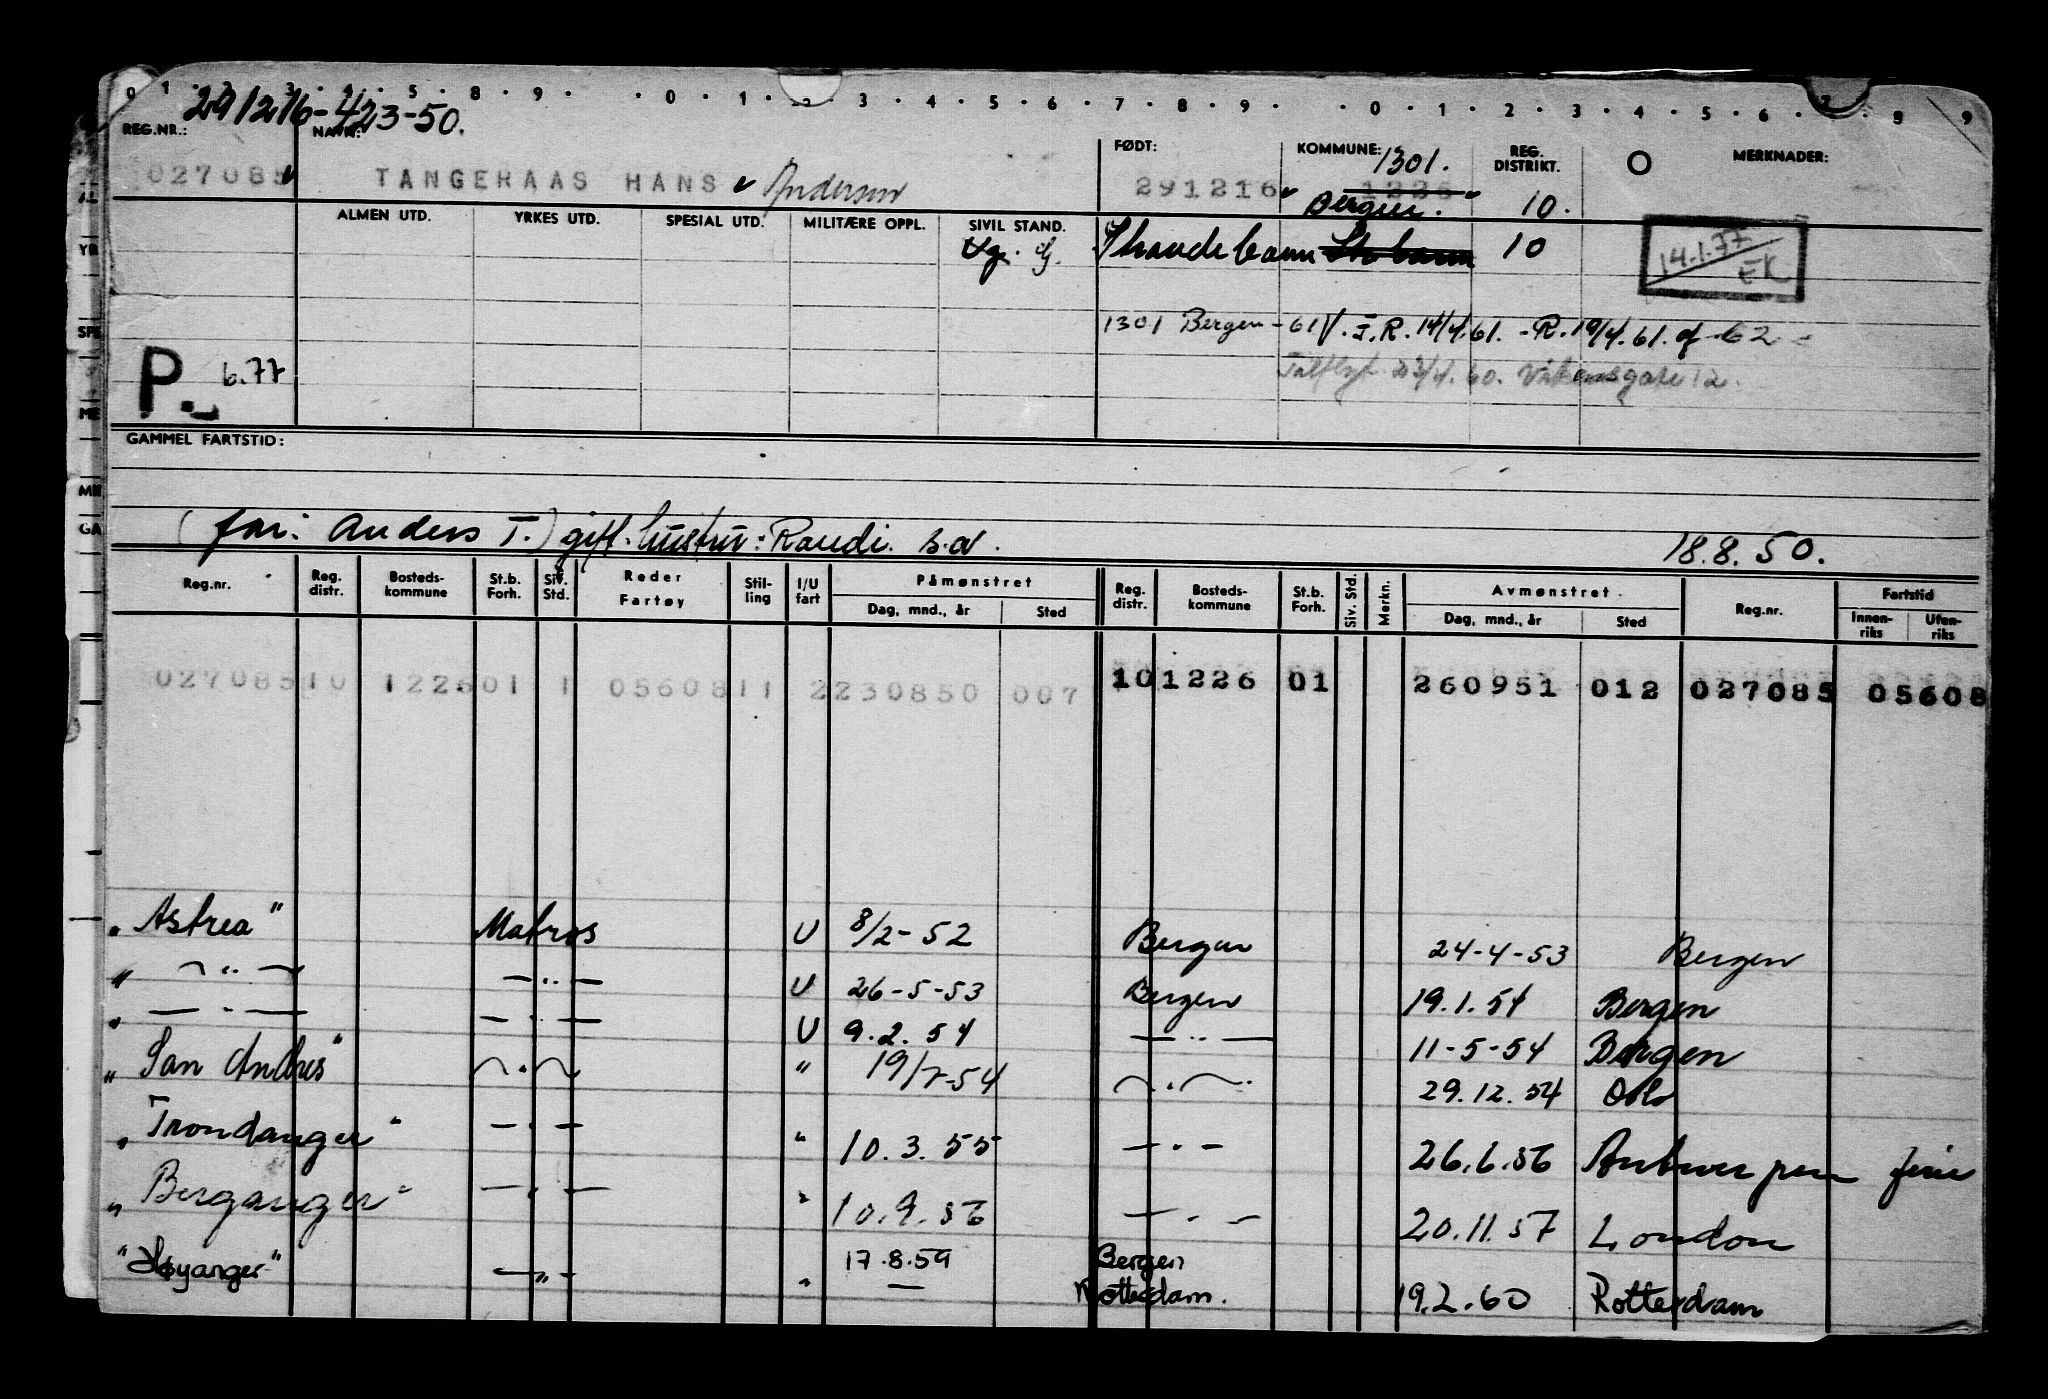 0 1 2 3 4 5 8 9 0 1 2 3 4 5 6 7 8 9 0 1 2 3 4 5 6 7 8 9
291216-423-50.
REG.NR.: NAVN: FØDT: KOMMUNE: 1301. REG. DISTRIKT. O MERKNADER:
027085 TANGERAAS HANS Anderson 291216 1226 Bergen. 10.
ALMEN UTD. YRKES UTD. SPESIAL UTD. MILITÆRE OPPL. SIVIL STAND.
Ug. G. Strandebarm 10
14.1.77 EK
1301 Bergen - 61 V. I.R. 14/4.61. - R. 19/4.61. of 62
P. 6.77
60. 12.
GAMMEL FARTSTID:
(far: Anders T.) gift. hustru: Randi s.a. 18.8.50.
Reg.nr. Reg. distr. Bosteds-kommune St.b. Forh. Siv. Std. Reder Fartøy Stil-ling I/U fart Påmønstret Dag, mnd., år Sted Reg. distr. Bosteds-kommune St.b. Forh. Siv. Std. Merkn. Avmønstret Dag, mnd., år Sted Reg.nr. Fartstid Innen-riks Uten-riks
027085 10 1226 01 1 0560811 2230850 007 10 1226 01 260951 012 027085 05608
"Astrea" Matros U 8/2-52 Bergen 24-4-53 Bergen
" — " — — " — U 26-5-53 Bergen 19.1.54 Bergen
" — " — — " — U 9.2.54 — " — 11-5-54 Bergen
"San Andres" — " — " 19/7-54 — " — 29.12.54 Oslo
"Trondanger" — " — " 10.3.55 — " — 26.6.56 Antwerpen ferie
"Berganger" — " — " 10.9.56 — " — 20.11.57 London
"Høyanger" — " — " 17.8.59 Bergen
— Rotterdam. 19.2.60 Rotterdam